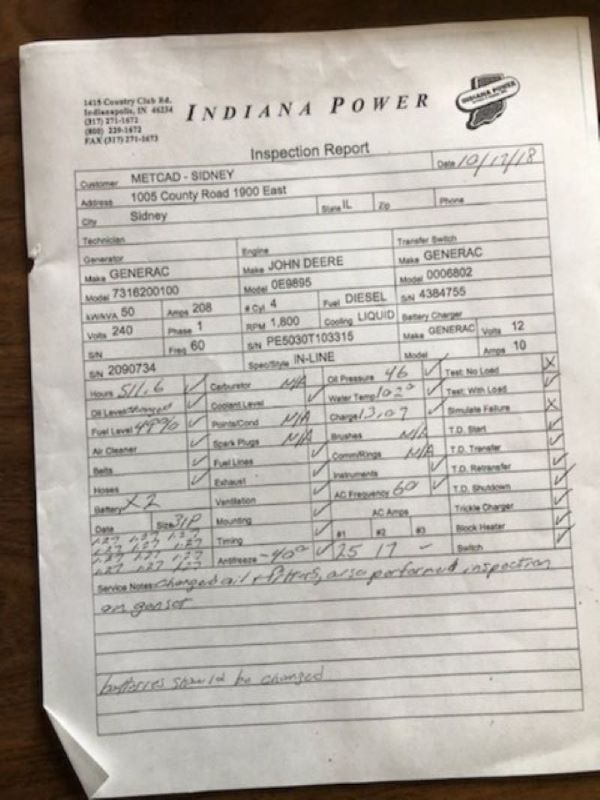 1415 Country Club Rd.
Indianapolis, IN 46234
(317) 271-1672
(800) 239-1672
FAX (317) 271-1673
INDIANA POWER
INDIANA POWER
Inspection Report
Customer METCAD - SIDNEY Date 10/17/18
Address 1005 County Road 1900 East
City Sidney State IL Zip Phone
Technician
Generator Engine Transfer Switch
Make GENERAC Make JOHN DEERE Make GENERAC
Model 7316200100 Model 0E9895 Model 0006802
kW/kVA 50 Amps 208 # Cyl 4 Fuel DIESEL S/N 4384755
Volts 240 Phase 1 RPM 1,800 Cooling LIQUID Battery Charger
S/N Freq 60 S/N PE5030T103315 Make GENERAC Volts 12
S/N 2090734 Spec/Style IN-LINE Model Amps 10
Hours 511.6 ✓ Carburetor N/A Oil Pressure 46 ✓ Test: No Load X
Oil Level changed ✓ Coolant Level ✓ Water Temp 102° ✓ Test: With Load ✓
Fuel Level 49% ✓ Points/Cond N/A Charge 13.07 ✓ Simulate Failure X
Air Cleaner ✓ Spark Plugs N/A Brushes N/A T.D. Start ✓
Belts ✓ Fuel Lines ✓ Comm/Rings N/A T.D. Transfer ✓
Hoses ✓ Exhaust ✓ Instruments ✓ T.D. Retransfer ✓
Battery X2 Ventilation ✓ AC Frequency 60 ✓ T.D. Shutdown ✓
Date Size 31P Mounting ✓ AC Amps Trickle Charger ✓
1.27 1.27 1.27 Timing ✓ #1 #2 #3 Block Heater ✓
1.27 1.27 1.27 Antifreeze -40° ✓ 25 17 - Switch ✓
1.27 1.27 1.27
1.27 1.27 1.27
Service Notes: changed oil + filters, also performed inspection
on genset
batteries should be changed